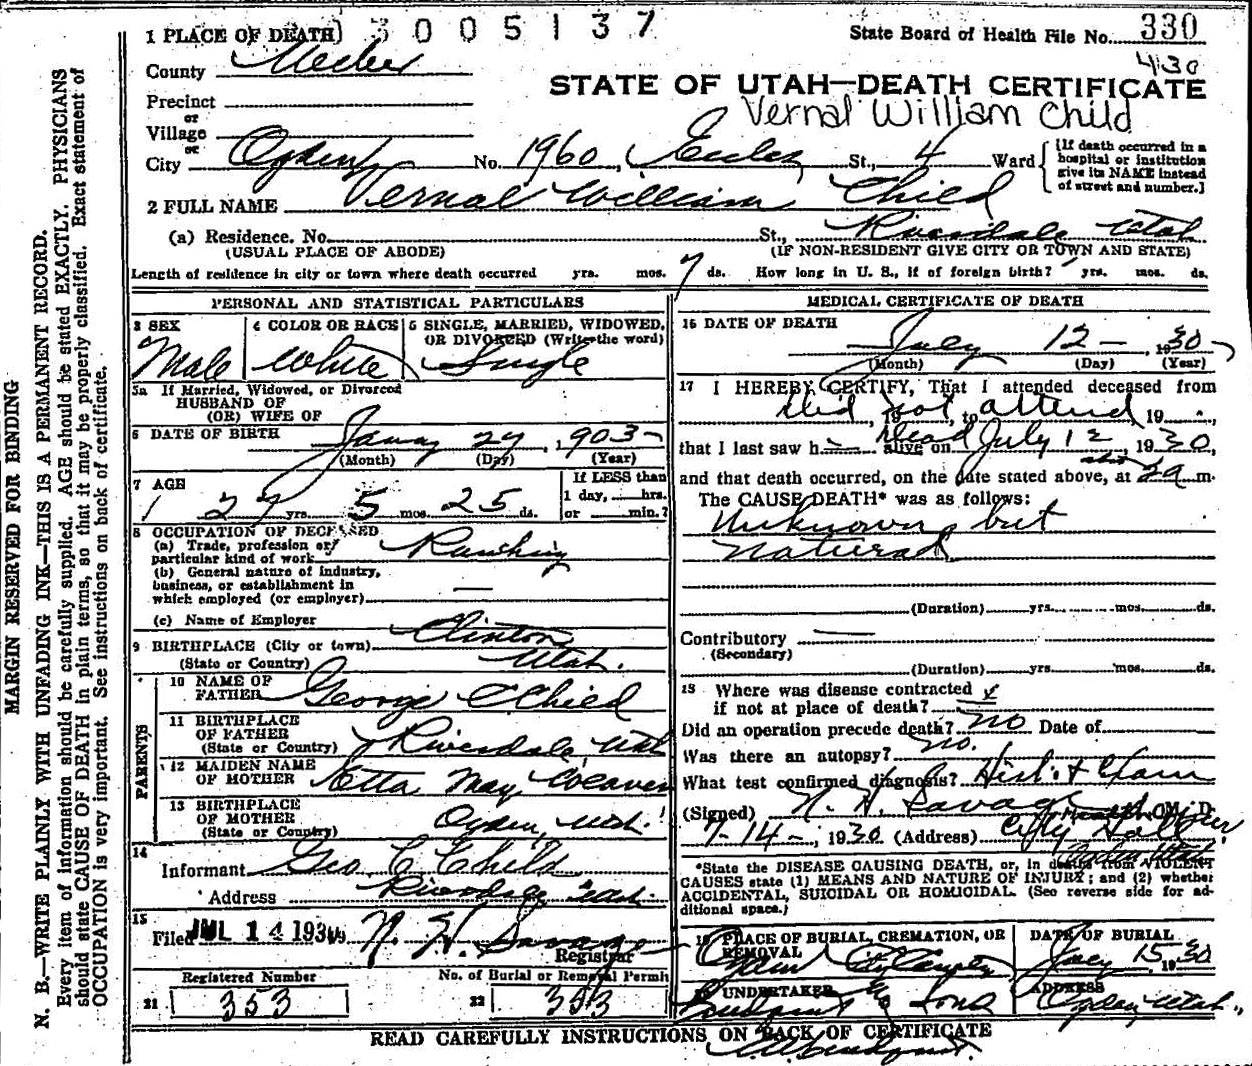 1 PLACE OF DEATH) 3 0 0 5 1 3 7 State Board of Health File No. 330
430
County Weber
STATE OF UTAH—DEATH CERTIFICATE
Precinct
or
Vernal William Child
Village
or
City Ogden No. 1960, St., 4 Ward
[If death occurred in a
hospital or institution
give its NAME instead
of street and number.]
2 FULL NAME Vernal William Child
(a) Residence. No. St., Riverdale Utah
(USUAL PLACE OF ABODE) (IF NON-RESIDENT GIVE CITY OR TOWN AND STATE)
Length of residence in city or town where death occurred yrs. mos. 7 ds. How long in U. S., if of foreign birth? yrs. mos. ds.
PERSONAL AND STATISTICAL PARTICULARS
3 SEX 4 COLOR OR RACE 5 SINGLE, MARRIED, WIDOWED,
OR DIVORCED (Write the word)
Male White Single
5a If Married, Widowed, or Divorced
HUSBAND OF
(OR) WIFE OF
6 DATE OF BIRTH 27, 1903
(Month) (Day) (Year)
7 AGE If LESS than
1 day, hrs.
27 yrs. 5 mos. 25 ds. or min.?
8 OCCUPATION OF DECEASED
(a) Trade, profession or
particular kind of work Ranching
(b) General nature of industry,
business, or establishment in
which employed (or employer) —
(c) Name of Employer
9 BIRTHPLACE (City or town) Clinton
(State or Country) Utah.
PARENTS
10 NAME OF
FATHER George C Child
11 BIRTHPLACE
OF FATHER
(State or Country) Riverdale Utah
12 MAIDEN NAME
OF MOTHER Etta May Weaver
13 BIRTHPLACE
OF MOTHER
(State or Country) Ogden, Utah
14
Informant Geo C Child
Address Riverdale Utah
15
Filed JUL 14 1930 N. H. Savage
Registrar
Registered Number No. of Burial or Removal Permit
21 353 22 353
MEDICAL CERTIFICATE OF DEATH
16 DATE OF DEATH
July 12 - 1930
(Month) (Day) (Year)
17 I HEREBY CERTIFY, That I attended deceased from
Did not, to attend, 19
that I last saw h alive on Dead July 12, 1930,
and that death occurred, on the date stated above, at m.
The CAUSE DEATH* was as follows:
Unknown but
Natural
(Duration) yrs. mos. ds.
Contributory —
(Secondary)
(Duration) yrs. mos. ds.
18 Where was disease contracted
if not at place of death?
Did an operation precede death? no Date of
Was there an autopsy? no.
What test confirmed diagnosis? Hist. + Exam
(Signed) N. H. Savage M. D.
7-14-, 1930 (Address) City Hall
Ogden Utah
*State the DISEASE CAUSING DEATH, or, in deaths from VIOLENT
CAUSES state (1) MEANS AND NATURE OF INJURY; and (2) whether
ACCIDENTAL, SUICIDAL OR HOMICIDAL. (See reverse side for ad-
ditional space.)
19 PLACE OF BURIAL, CREMATION, OR
REMOVAL
Ogden City Cemetery
DATE OF BURIAL
July 15, 1930
20 UNDERTAKER
Lindquist & Sons
ADDRESS
Ogden, Utah.
READ CAREFULLY INSTRUCTIONS ON BACK OF CERTIFICATE
MARGIN RESERVED FOR BINDING
N. B.—WRITE PLAINLY WITH UNFADING INK—THIS IS A PERMANENT RECORD.
Every item of information should be carefully supplied. AGE should be stated EXACTLY. PHYSICIANS
should state CAUSE OF DEATH in plain terms, so that it may be properly classified. Exact statement of
OCCUPATION is very important. See instructions on back of certificate.